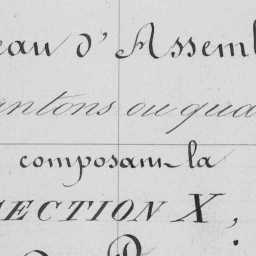 eau d'Assemb
antons ou qua
composant la
SECTION X,